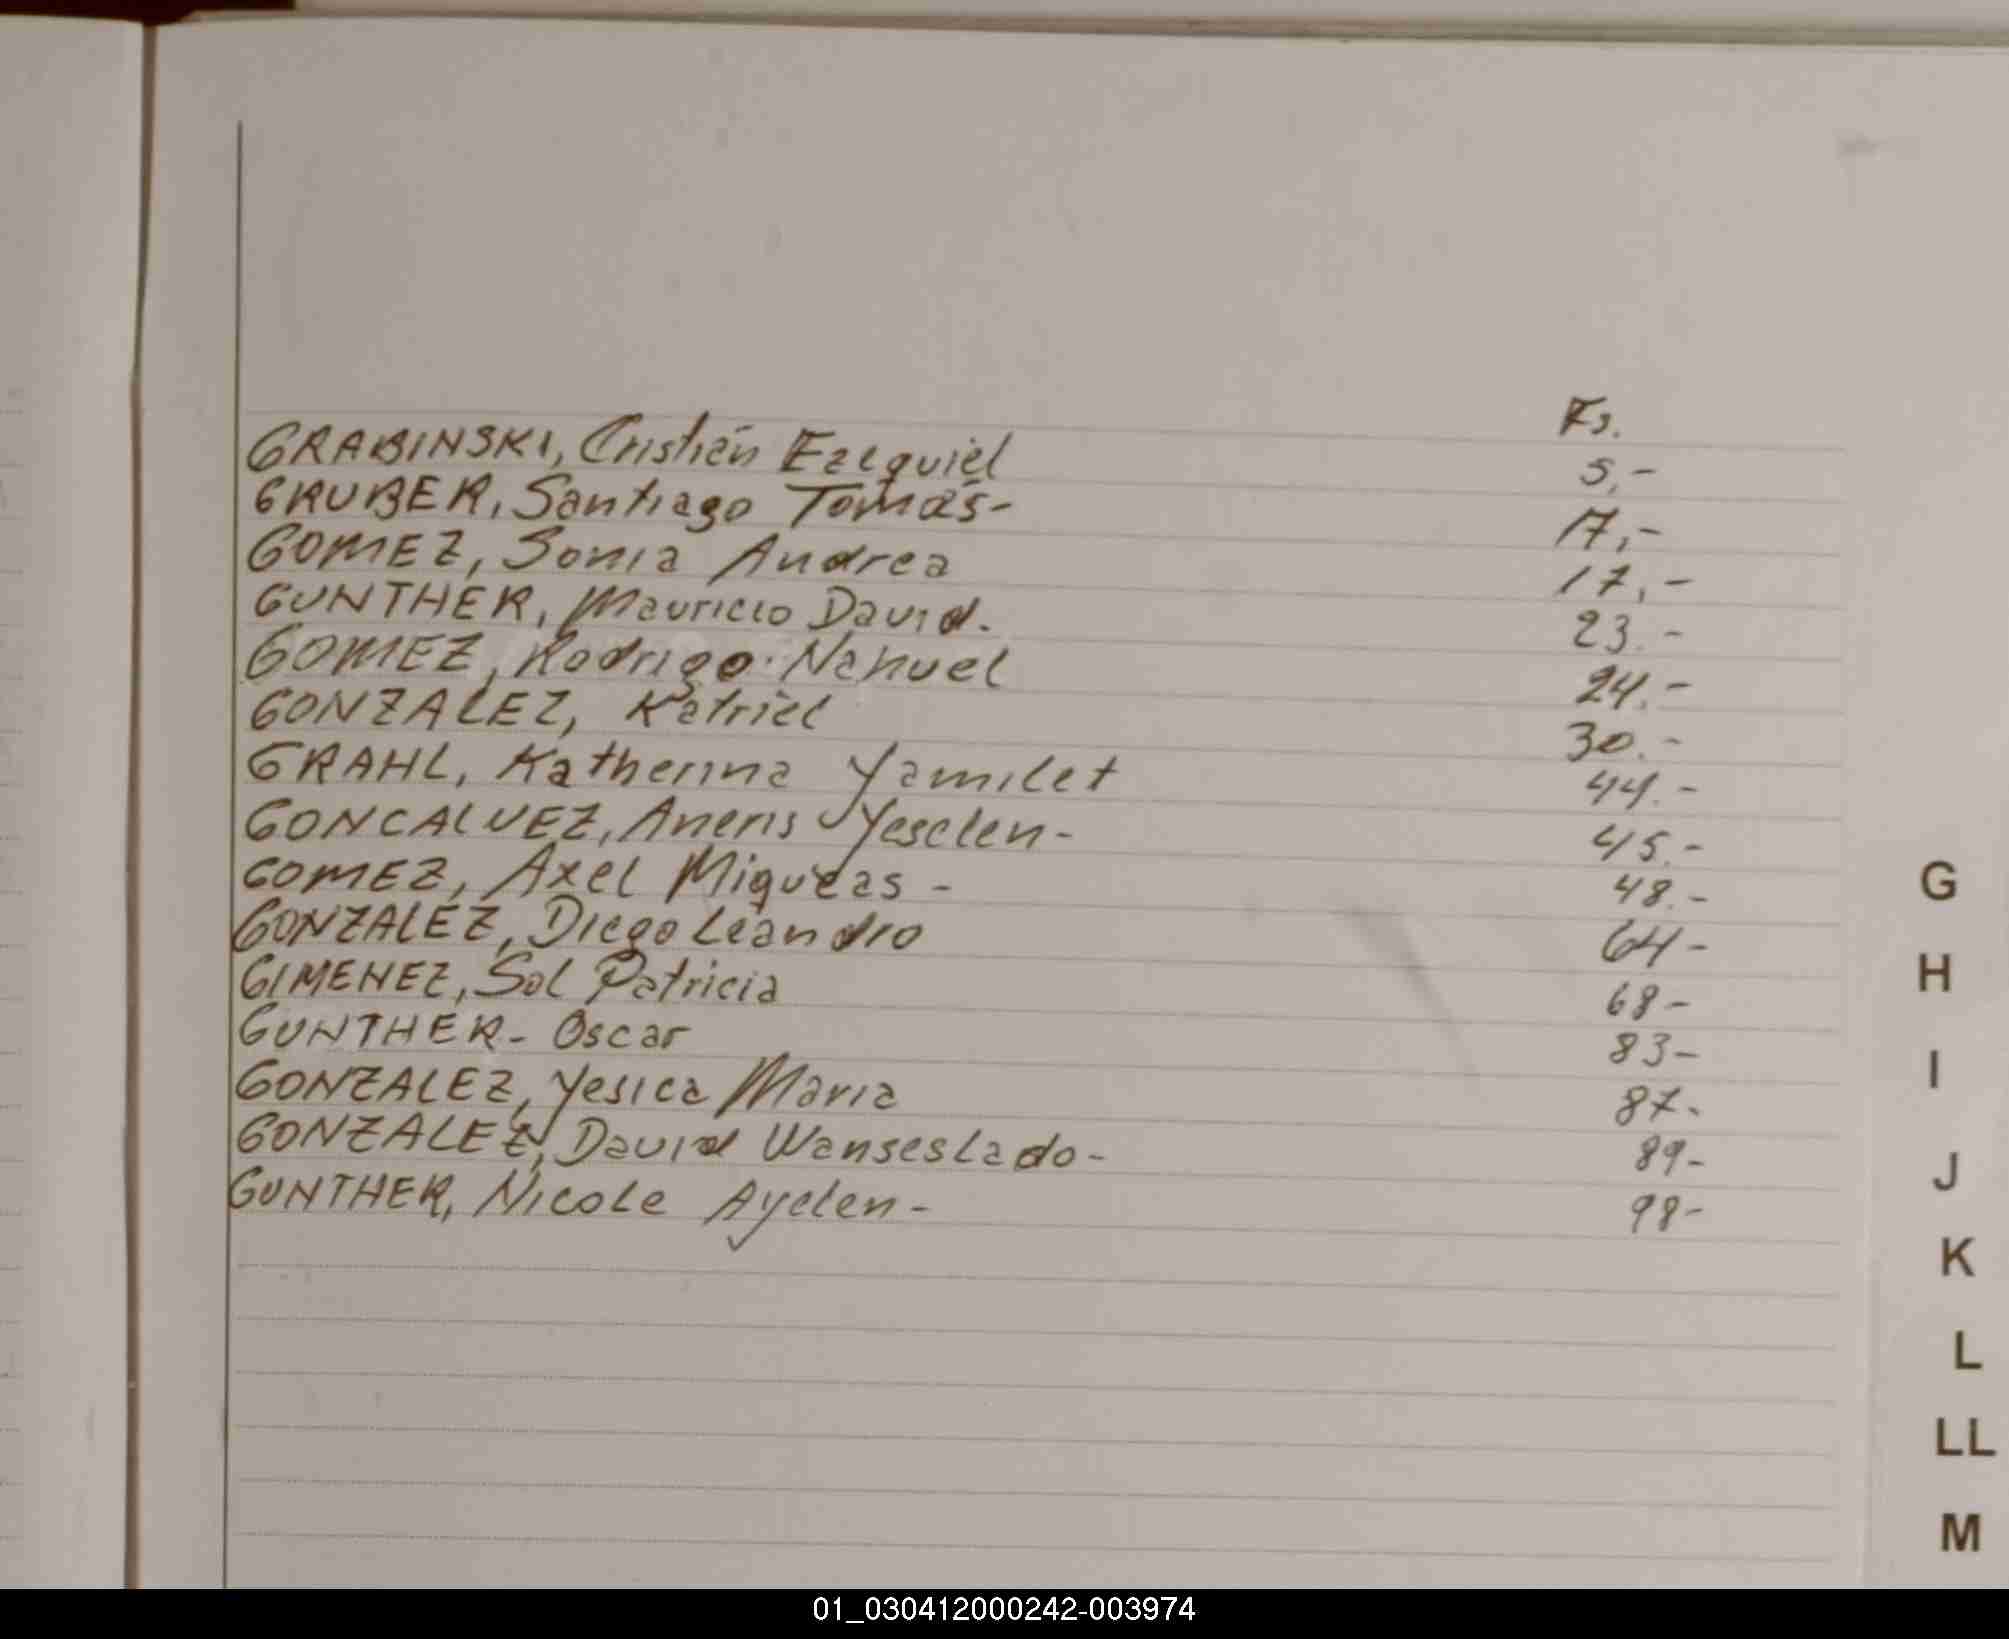 Fs.
GRABINSKI, Cristián Ezequiel 5,-
GRUBER, Santiago Tomás- 17,-
GOMEZ, Sonia Andrea 17,-
GUNTHER, Mauricio David. 23.-
GOMEZ, Rodrigo Nahuel 24.-
GONZALEZ, Katriel 30.-
GRAHL, Katherina Yamilet 44.-
GONCALVEZ, Aneris Yesclen- 45.-
GOMEZ, Axel Miqueas - 48.-
GONZALEZ, Diego Leandro 64-
GIMENEZ, Sol Patricia 68-
GUNTHER- Oscar 83-
GONZALEZ, Yesica Maria 87.
GONZALEZ, David Wanseslado- 89-
GUNTHER, Nicole Ayelen- 98-
G
H
I
J
K
L
LL
M
01_030412000242-003974